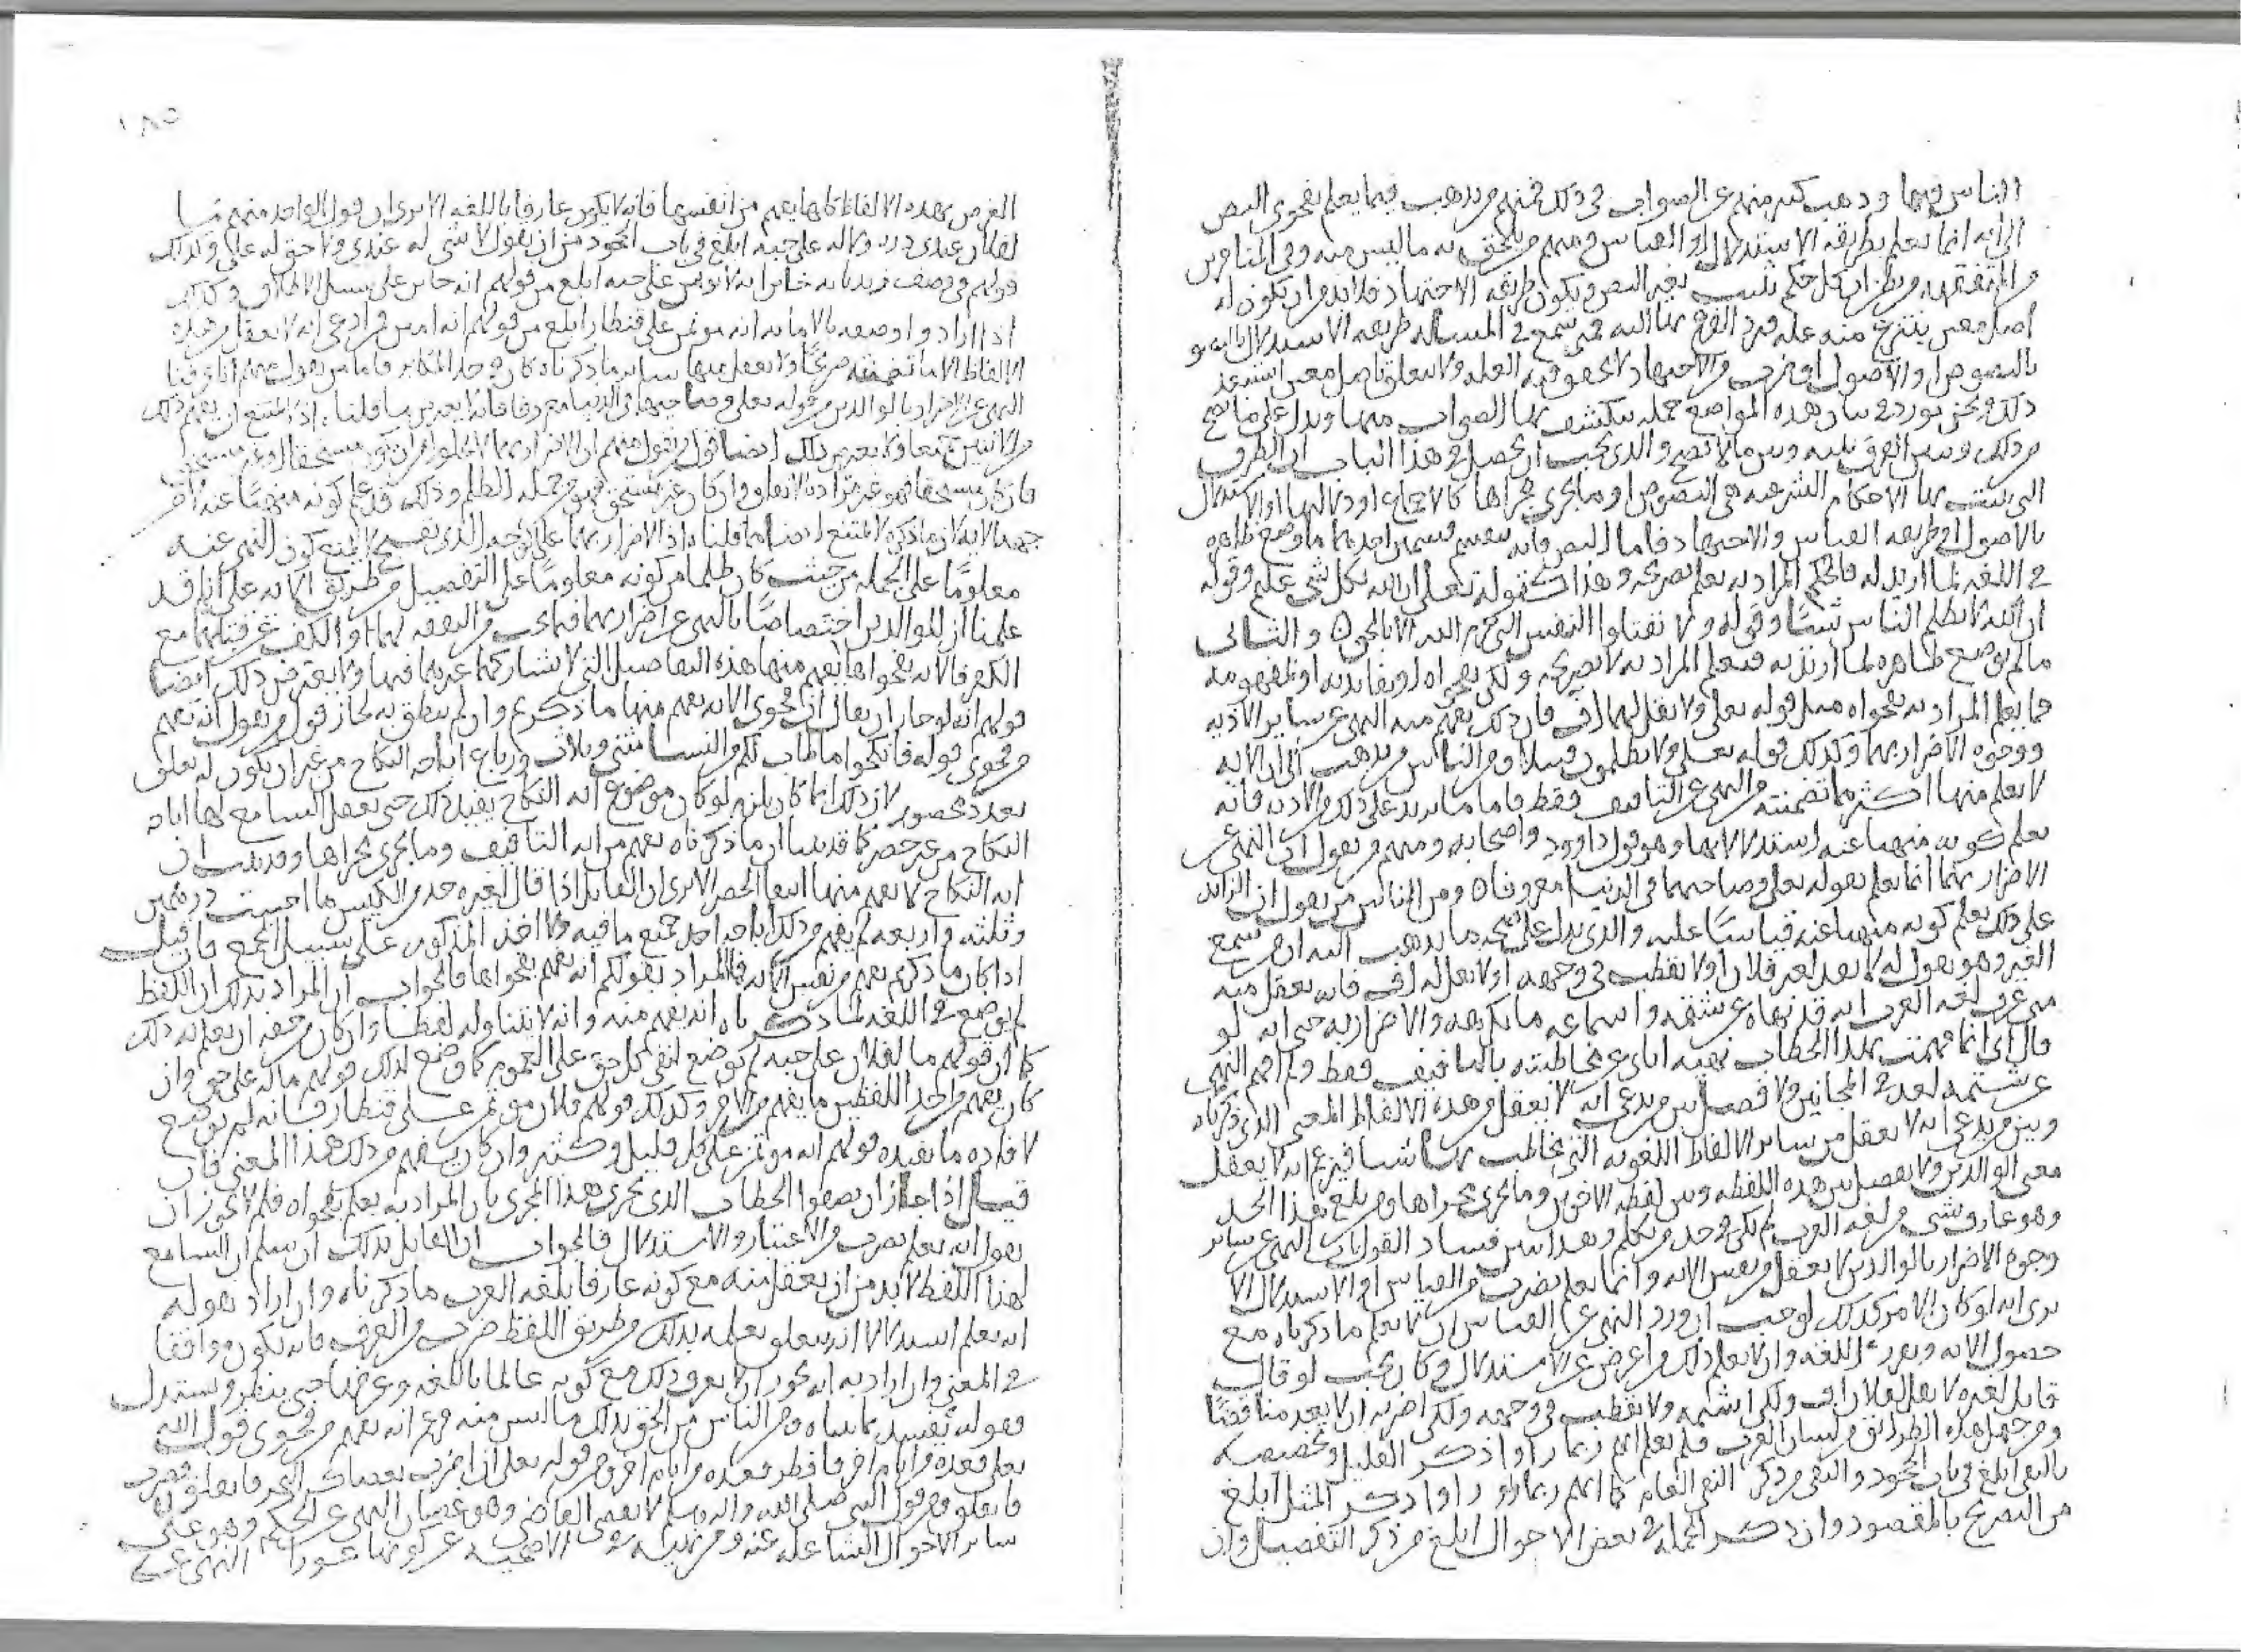 الناس فيها وذهب كثير منهم عن الصواب في ذلك فمنهم من يذهب فيما يعلم بفحوى النص
إلى انه انما يعلم بطريقة الاستدلال او القياس ومنهم من يلحق به ما ليس منه وفي الناس من
من المتفقهة من يظن ان كل حكم ثبت بغير النص ويكون طريقه الاجتهاد فلا بد من ان يكون له
اصل معين ينتزع منه علة فيرد الفرع بها اليه متى سمع في المسألة طريقة الاستدلال
بالنصوص او الاصول او ضرب من الاجتهاد لا يحقق فيه العلة ولا يتعلق باصل معين استبعد
ذلك ونحن نورد في بيان هذه المواضع جملة ينكشف بها الصواب منها ويدل على ما يصح
من ذلك ونبين الفرق بينه وبين ما لا يصح والذي يجب ان يحصل في هذا الباب ان الطرق
التي تثبت بها الاحكام الشرعية هي النصوص او ما يجري مجراها كالاجماع او الاستدلال
بالاصول او طريقة القياس والاجتهاد فاما النص فانه ينقسم قسمين احدهما ما وضع ظاهره
في اللغة لما اريد له فالحكم المراد به يعلم بصريحه وهذا كقوله تعالى ان الله بكل شي عليم وقوله
ان الله لا يظلم الناس شيئا وقوله ولا تقتلوا النفس التي حرم الله الا بالحق والثاني
ما لم يوضع ظاهره لما اريد به فيعلم المراد به لا بصريحه ولكن بفحواه او بفائدته او بمفهومه
فما يعلم المراد به بفحواه مثل قوله تعالى ولا تقل لهما اف فان ذلك يفهم منه النهي عن ساير الاذية
ووجوه الاضرار بهما وكذلك قوله تعالى ولا يظلمون فتيلا ومن الناس من يذهب الى ان الاية
لا يعلم منها اكثر مما تضمنته من النهي عن التافيف فقط فاما ما يزيد على ذلك من الاذية فانه
يعلم كونه منهيا عنه استدلالا بها وهو قول داوود واصحابه ومنهم من يقول ان النهي عن
الاضرار بهما انما يعلم بقوله تعالى وصاحبهما في الدنيا معروفا ومن الناس من يقول ان الزائد
على ذلك يعلم كونه منهيا عنه قياسا عليه والذي يدل على صحة ما يذهب اليه ان من سمع
الغير وهو يقول له لا تقل لفلان اف ولا تقطب في وجهه او لا تقل له اف فانه يعقل منه
من عرف لغة العرب انه قد نهاه عن شتمه واسماعه ما يكرهه والاضرار به حتى انه لو
قال اني انما فهمت بهذا الخطاب نهيه اياي عن مخاطبته بالتافيف فقط ولم افهم النهي
عن شتمه لعد في المجانين ولا فصل بين من يدعي انه لا يعقل من هذه الالفاظ المعنى الذي ذكرناه
وبين من يدعي انه لا يعقل من ساير الالفاظ اللغوية التي يخاطب بها شيا فيزعم انه لا يعقل
معنى الوالدين ولا يفصل بين هذه اللفظة وبين لفظة الاخرى وما يجري مجراها ومن بلغ هذا الحد
وهو عارف بشي من لغة العرب لم يكن في حد من يكلم وهذا يبين فساد القول بان النهي عن ساير
وجوه الاضرار بالوالدين لا يعقل من نفس الاية وانما يعلم بضرب من القياس او الاستدلال الا
ترى انه لو كان الامر كذلك لوجب ان ورد النهي عن القياس ان لا يعلم ما ذكرناه مع
حصول الاية ومعرفة اللغة وان لا يعلم ذلك من اعرض عن الاستدلال وكان يجب لو قال
قايل لغيره لا تقل لفلان اف ولكن اشتمه ولا تقطب في وجهه ولكن اضربه ان لا يعد مناقضا
ومن جهل هذه الطرائق من لسان العرب فلم يعلم انهم ربما راوا ذكر القليل وتخصيصه
بالنفي ابلغ في باب الجحود والنفي من ذكر النفي العام كما انهم ربما راوا ذكر المثل ابلغ
من التصريح بالمقصود وان ذكر الجملة في بعض الاحوال ابلغ من ذكر التفصيل وان
١٨٥
الغرض بهذه الالفاظ كلها يفهم من انفسها فانه لا يكون عارفا باللغة الا ترى ان قول الواحد منهم ما
لفلان عندي ذرة ولا له علي حبة ابلغ في باب الجحود من ان يقول لا شي له عندي ولا حق له علي وكذلك
قولهم في وصف غيرنا بانه خاين انه لا يؤتمن على حبة ابلغ من قولهم انه خاين على سبيل الاطلاق وكذلك
اذا ارادوا وصفه بالامانة انه مؤتمن على قنطار ابلغ من قولهم انه امين فمن ادعى انه لا يعقل من هذه
الالفاظ الا ما تضمنته صريحا ولا يعقل منها ساير ما ذكرناه كان في حد المكابر فاما من يقول منهم انا عرفنا
النهي عن الاضرار بالوالدين من قوله تعالى وصاحبهما في الدنيا معروفا فانه لا يعترض ما قلناه اذ لا يمتنع ان يفهم ذلك
من الايتين جميعا ولا يعترض ذلك ايضا قول من يقول منهم ان الاضرار بهما لا يخلو من ان يكون مستحقا او غير مستحق
فان كان مستحقا فهو غير مراد بالاية وان كان غير مستحق فهو من جملة الظلم وذلك قد علم كونه منهيا عنه لا من
جهة الاية لان ما ذكره لا يمنع ايضا مما قلناه اذ الاضرار بهما على الوجه الذي يقبح لا يمتنع كون النهي عنه
معلوما على الجملة من حيث كان ظلما مع كونه معلوما على التفصيل من طريق الاية على انا قد
علمنا ان للوالدين اختصاصا بالنهي عن اضرارهما فيما يجب من النفقة لهما او الكف عن قتلهما مع
الكفر فالاية بفحواها يفهم منها هذه التفاصيل التي لا يشاركهما غيرهما فيها ولا يعترض ذلك ايضا
قولهم انه لو جاز ان يقال ان فحوى الاية يفهم منها ما ذكر وان لم ينطق به لجاز قول من يقول انه يفهم
من فحوى قوله فانكحوا ما طاب لكم من النساء مثنى وثلاث ورباع اباحة النكاح من غير ان يكون له تعلق
بعدد محصور لان ذلك انما كان يلزم لو كان موضوع اية النكاح يفيد ذلك حتى يعقل السامع لها اباحة
النكاح من غير حصر كما قد بينا ان ما ذكرناه يفهم من اية التافيف وما يجري مجراها وقد ثبت ان
اية النكاح لا يفهم منها انتفاء الحصر الا ترى ان القايل اذا قال لغيره خذ من الكيس ما احببت درهمين
وثلثة واربعة لم يفهم من ذلك اباحة اخذ جميع ما فيه ولا اخذ المذكور على سبيل الجمع فان قيل
اذا كان ما ذكرتم يفهم من نفس الاية فالمراد بقولكم انه يفهم بفحواها فالجواب ان المراد بذلك ان اللفظ
لم يوضع في اللغة لما ذكرناه انه يفهم منه وانه لا يتناوله لفظا وان كان من حقه ان يعلم به ذلك
كما ان قولهم ما لفلان علي حبة لم يوضع لنفي كل حق على العموم كما وضع لذلك قولهم ماله علي حق وان
كان يفهم من احد اللفظين ما يفهم من الاخر وكذلك قولهم فلان مؤتمن على قنطار فانه لم يوضع
لافادة ما يفيده قولهم انه مؤتمن على كل قليل وكثير وان كان يفهم من ذلك هذا المعنى فان
قيل اذا جاز ان يصفوا الخطاب الذي يجري هذا المجرى بان المراد به يعلم بفحواه فلم لا يجوز ان
يقول انه يعلم بضرب من الاعتبار والاستدلال فالجواب ان القايل بذلك ان سلم ان السامع
لهذا اللفظ لا بد من ان يعقل منه مع كونه عارفا بلغة العرب ما ذكرناه وان اراد بقوله
انه يعلم استدلالا انه يتعلق علمه بذلك من طريق اللفظ ضرب من العرف فانه يكون موافقا
في المعنى وان اراد به انه يجوز ان لا يعرف ذلك مع كونه عالما باللغة وعرفها حتى ينظر ويستدل
فقوله يفسد بما بيناه ومن الناس من الحق بذلك ما ليس منه فزعم انه يفهم من فحوى قول الله
تعالى فعدة من ايام اخر فافطر فعدة من ايام اخر ومن قوله تعالى ان اضرب بعصاك البحر فانفلق فضرب
فانفلق ومن قول النبي صلى الله عليه واله وسلم لا يقضي القاضي وهو غضبان النهي عن الحكم وهو على
ساير الاحوال الشاغلة عنه ومن نهيه في الاضحية عن كونها عوراء النهي عن